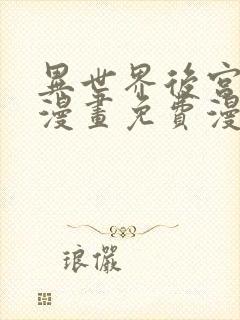 異世界後宮
漫畫免費漫
琅儼